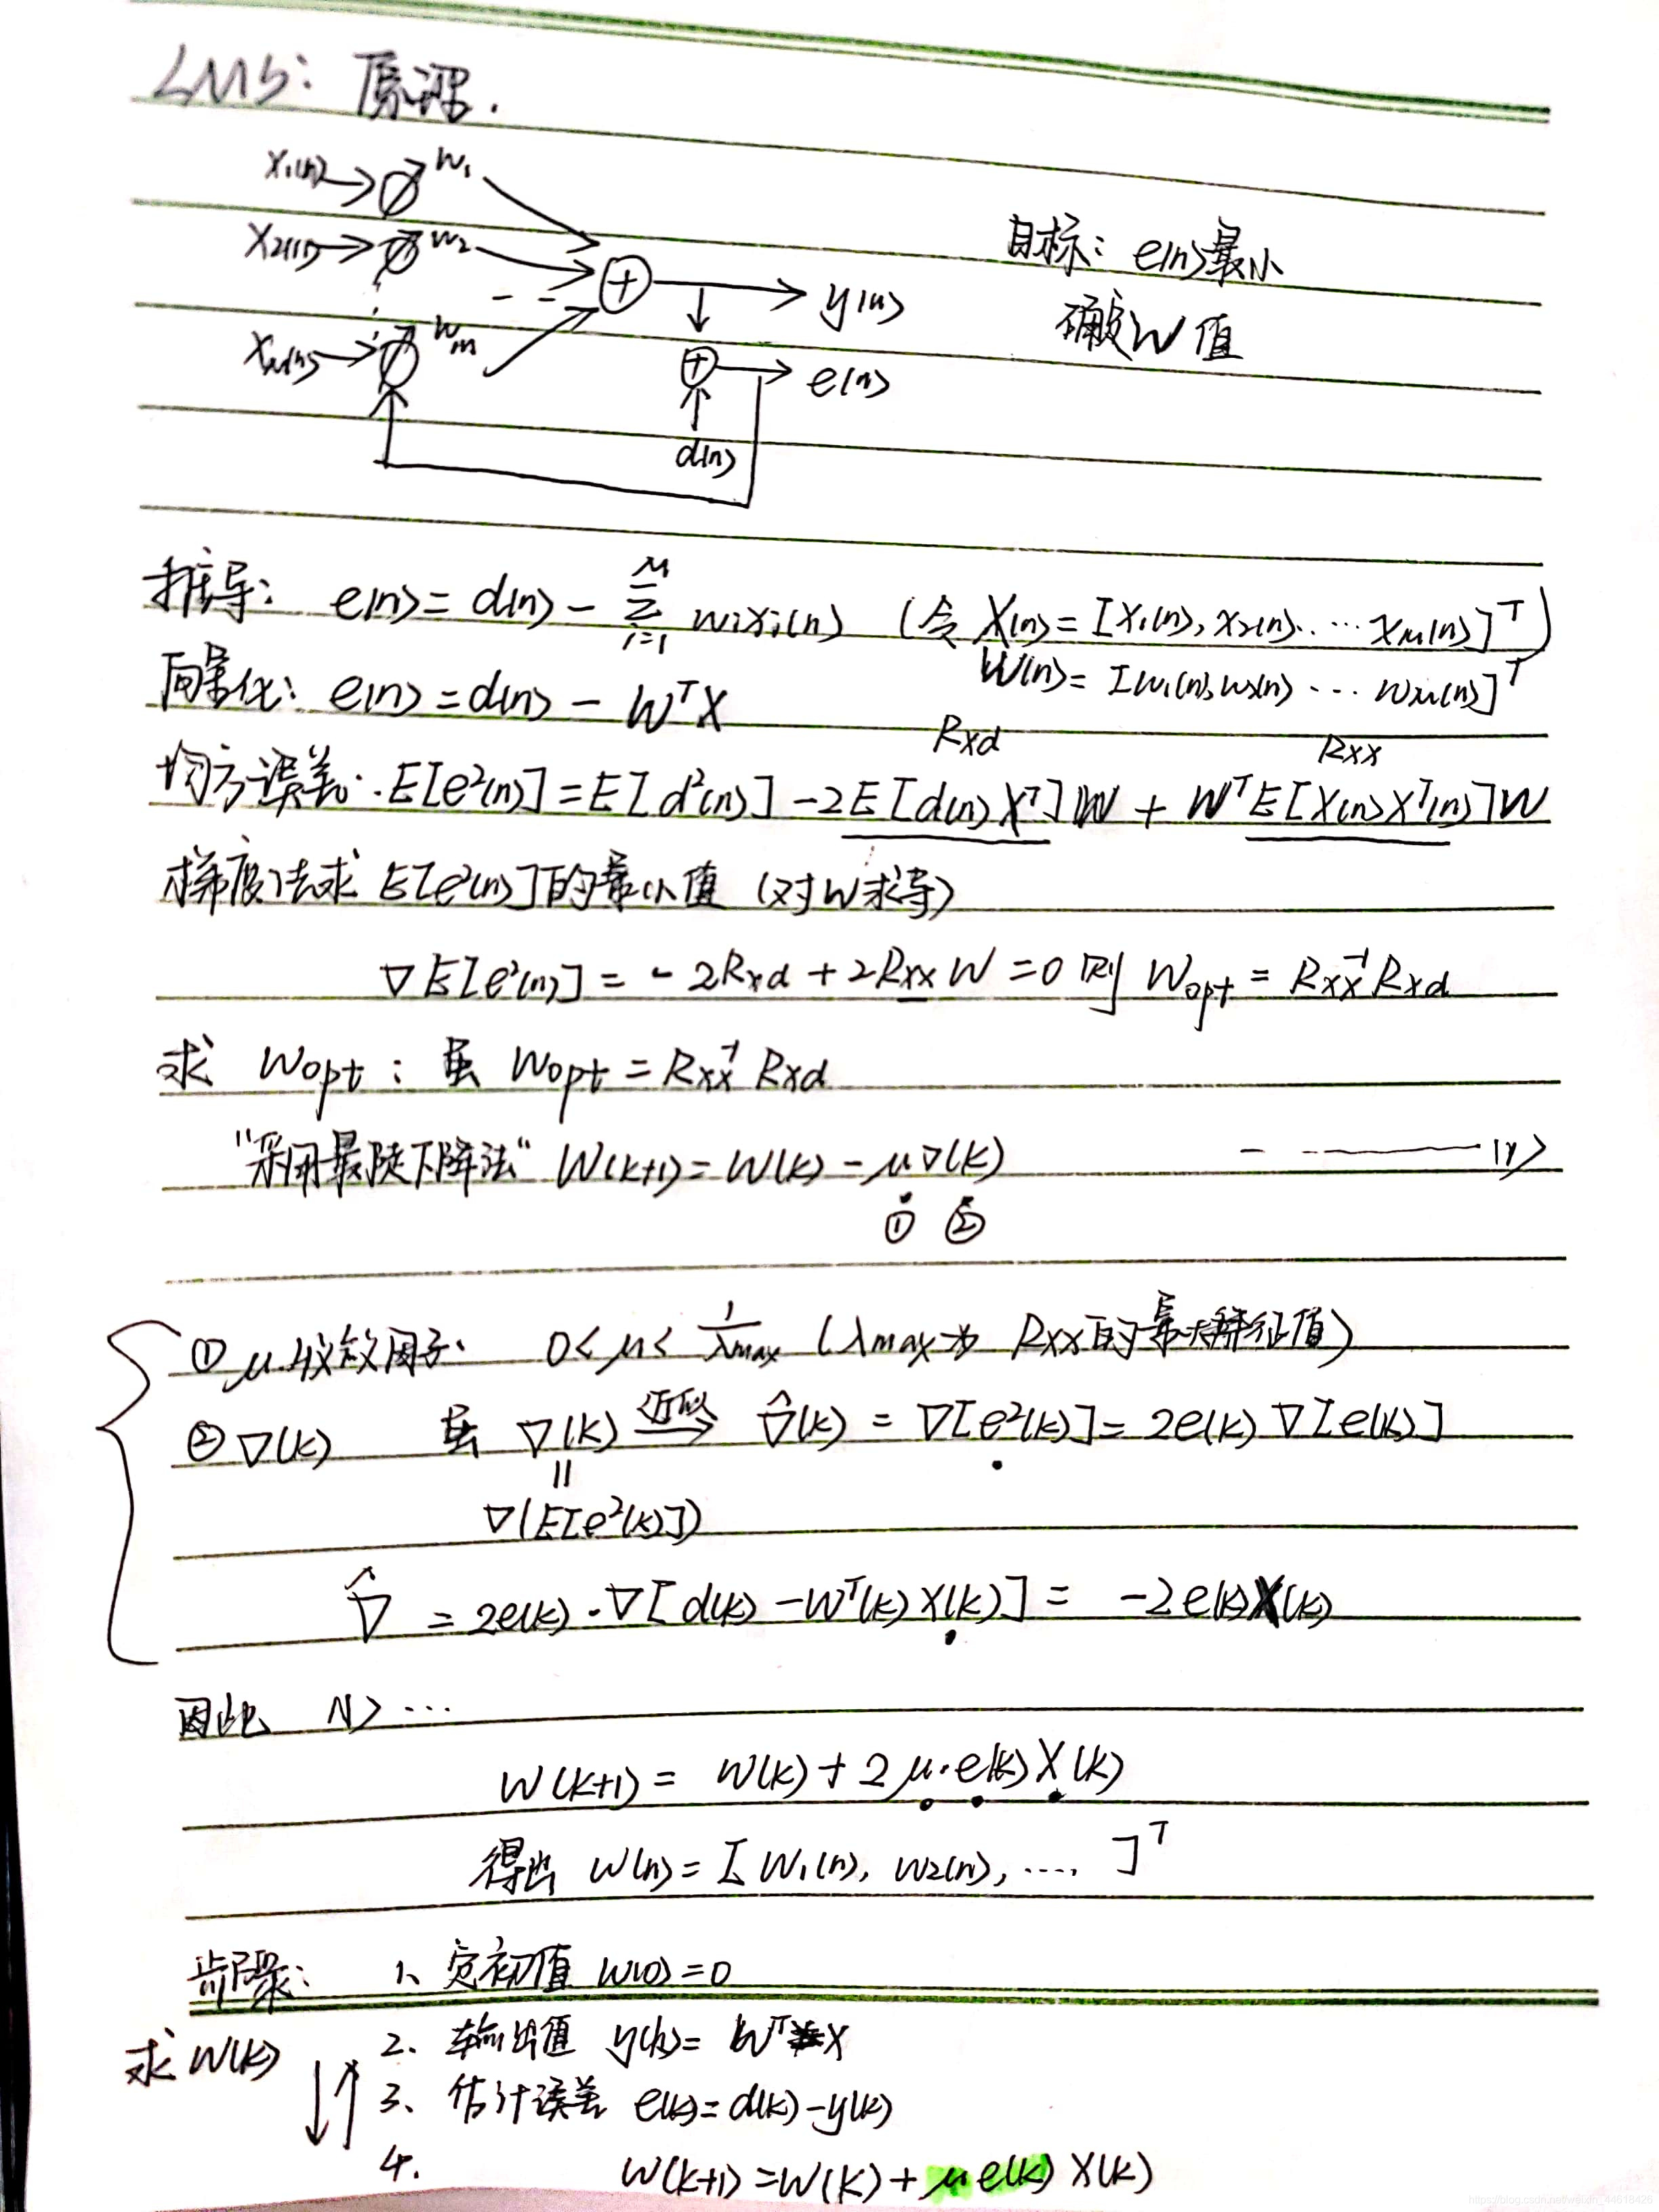 LMS: 原理.
X₁(n) W₁
X₂(n) W₂
目标: e(n)最小
y(n)
确定W值
Wm
e(n)
d(n)
推导: e(n) = d(n) - Σ_{i=1}^{M} wᵢxᵢ(n) (令 X(n) = [X₁(n), x₂(n)..... x_M(n)]ᵀ)
W(n) = [w₁(n), w₂(n) ... w_M(n)]ᵀ
向量化: e(n) = d(n) - WᵀX
Rxd Rxx
均方误差: E[e²(n)] = E[d²(n)] - 2E[d(n)Xᵀ]W + WᵀE[X(n)Xᵀ(n)]W
梯度法求 E[e²(n)]的最小值 (对W求导)
∇E[e²(n)] = - 2Rxd + 2Rxx W = 0 则 Wopt = Rxx⁻¹ Rxd
求 Wopt : 虽 Wopt = Rxx⁻¹ Rxd
"采用最陡下降法" W(k+1) = W(k) - μ∇(k) - ——— 1)
① ②
① μ收敛因子. 0 < μ < 1/λmax (λmax为 Rxx的最大特征值)
② ∇(k) 虽 ∇(k) 近似→ ∇̂(k) = ∇[e²(k)] = 2e(k) ∇[e(k)]
||
∇(E[e²(k)])
∇̂ = 2e(k)·∇[d(k) - Wᵀ(k)X(k)] = -2e(k)X(k)
因此 1) ...
W(k+1) = W(k) + 2μ·e(k)X(k)
得出 W(n) = [W₁(n), W₂(n), ..... ]ᵀ
步骤: 1、定初值 W(0) = 0
求W(k) 2. 输出值 y(k) = WᵀX
3、估计误差 e(k) = d(k) - y(k)
4. W(k+1) = W(k) + μe(k) X(k)